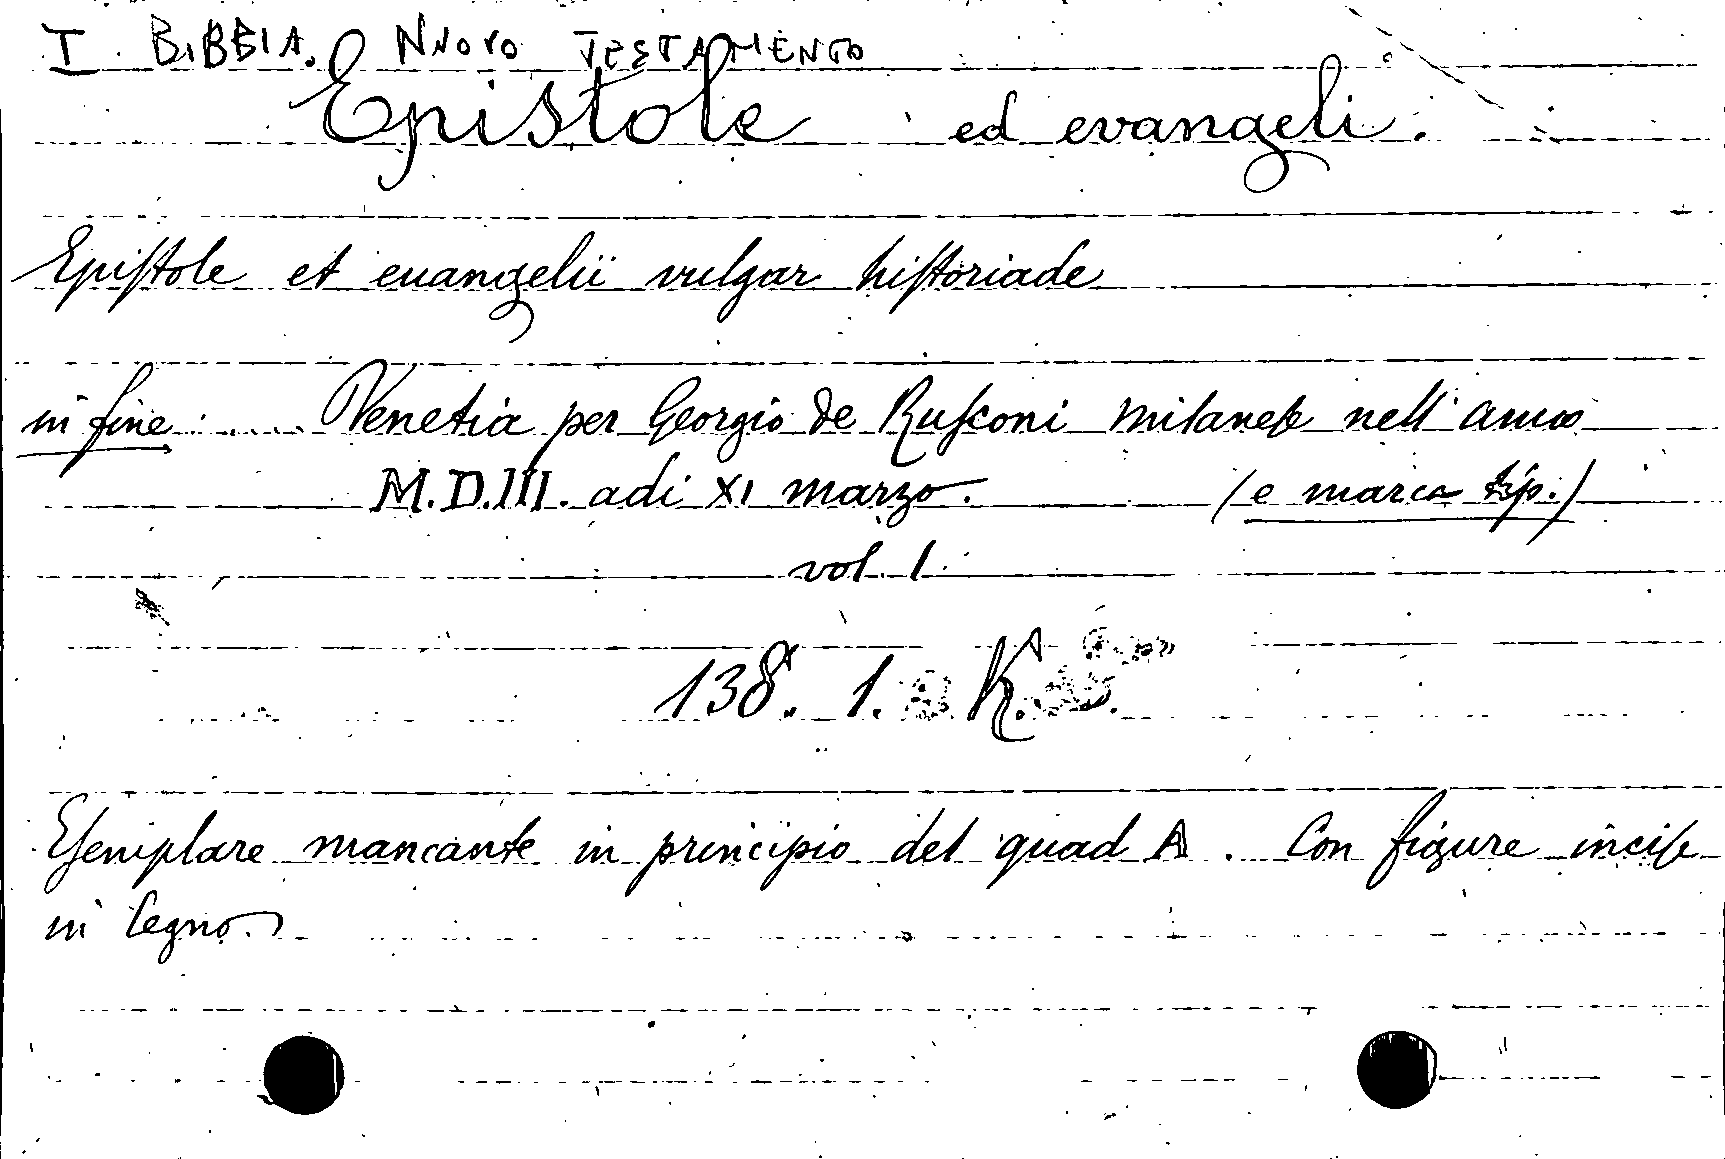 I BIBBIA. NUOVO TESTAMENTO
Epistole ed evangeli.
Epiſtole et euangelii vulgar hiſtoriade
in fine: .... Venetia per Georgio de Ruſconi milaneſe nell' anno
M.D.III. adi XI marzo. (e marca tip.)
vol. 1.
138. 1. K.
Eſemplare mancante in principio del quad A. Con figure inciſe
in legno.